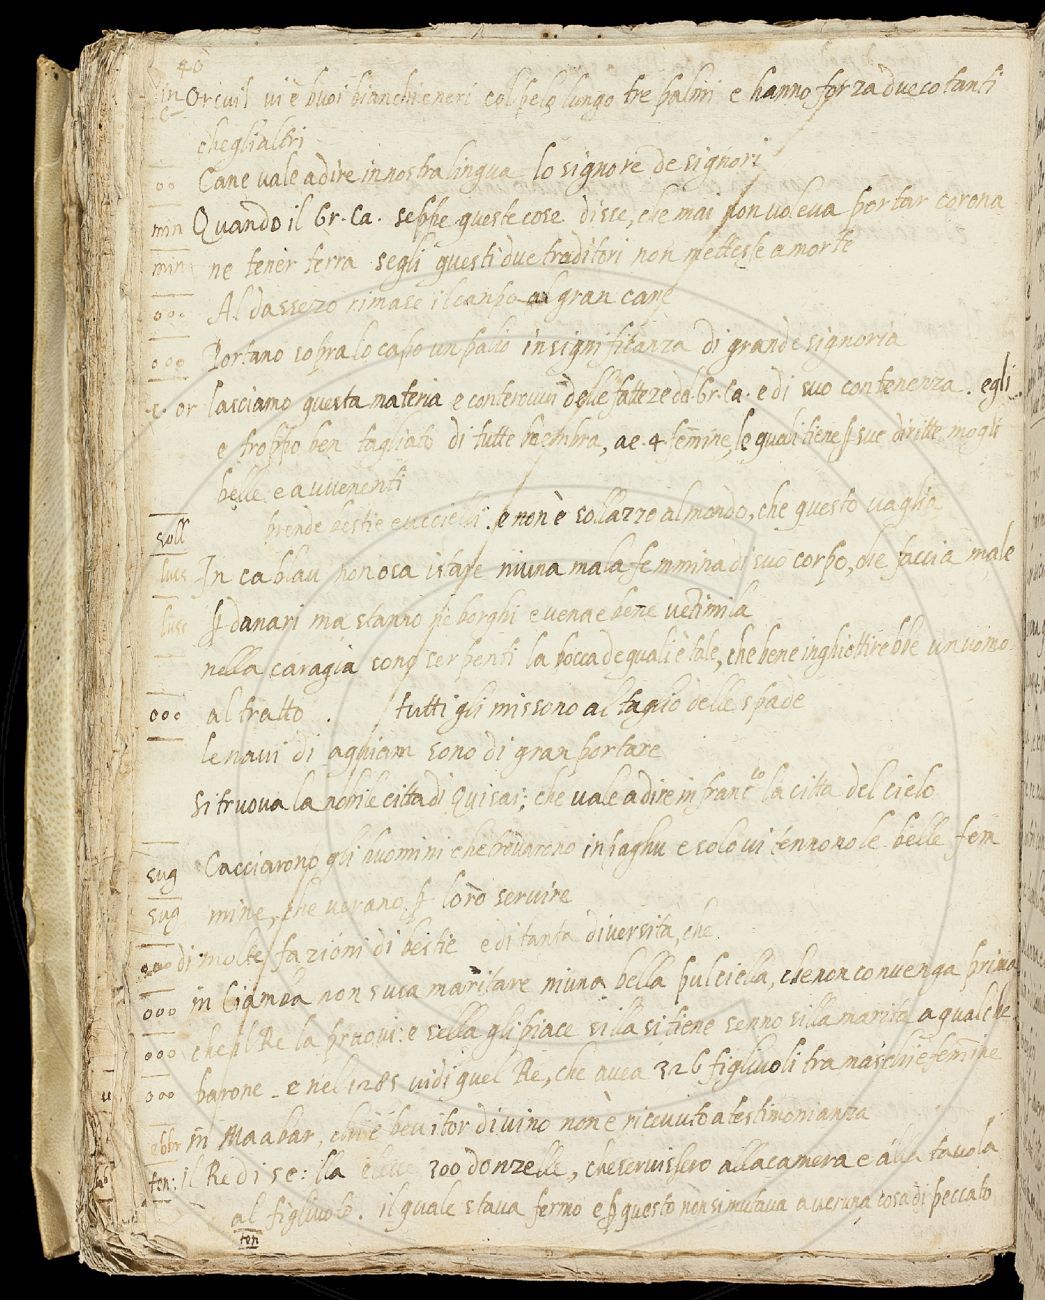 40
in Orcuil vi è buoi bianchi e neri col pelo lungo tre palmi e hanno forza due cotanti
che gli altri
oo Cane vale a dire in nostra lingua lo signore de signori
min Quando il Gr. Ca. seppe queste cose disse, che mai non voleva portar corona
min ne tener terra segli questi due traditori non mettesse a morte
ooo Al dassezo rimase il canpo al gran cane
ooo Portano sopra lo capo un palio in significanza di grande signoria
or lasciamo questa materia e conterovvi delle fatteze del Gr. Ca. e di suo contenenza. egli
e troppo ben tagliato di tutte membra, ae 4 femine, le quali tiene p sue diritte mogli
belle e avvenenti
soll prende bestie e uccielli. e non è sollazzo al mondo, che questo vaglia
luss In cablau non osa istare niuna mala femmina di suo corpo, che faccia male
luss p danari ma stanno ne borghi e vena e bene ventimila
nella caragia sono serpenti la bocca de quali è tale, che bene inghiottirebbe un uomo
ooo al tratto. tutti gli missono al taglio delle spade
le navi di aghiam sono di gran portare
si truova la nobile citta di Quisai; che vale a dire in franc.co la citta del cielo
sug Cacciarono gli huomini che trovarono in saghu e solo vi tennono le belle fem
sug mine, che verano, p loro servire
ooo di molte fazioni di bestie e di tanta diversita, che
ooo in Ciamba non susa maritare niuna bella pulciella, che non convenga prima
ooo che il Re la pruovi: e sella gli piace silla si tiene senno silla marita a qualche
ooo barone - e nel 1285 vidi quel Re, che avea 326 figliuoli tra maschi e femine
ebbr in Maabar, chi è bevitor di vino non è ricevuto a testimonianza
ton: il Re di se: lla elleve 300 donzelle, che servissero alla camera e alla tavola
al figliuolo. il quale stava fermo e p questo non si mutava a veruna cosa di peccato
ton